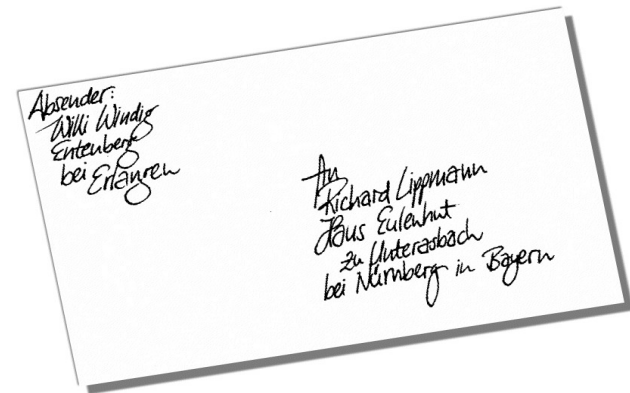 Absender:
Willi Windig
Entenberg
bei Erlangen
An
Richard Lippmann
Haus Eulenhut
zu Unterasbach
bei Nürnberg in Bayern